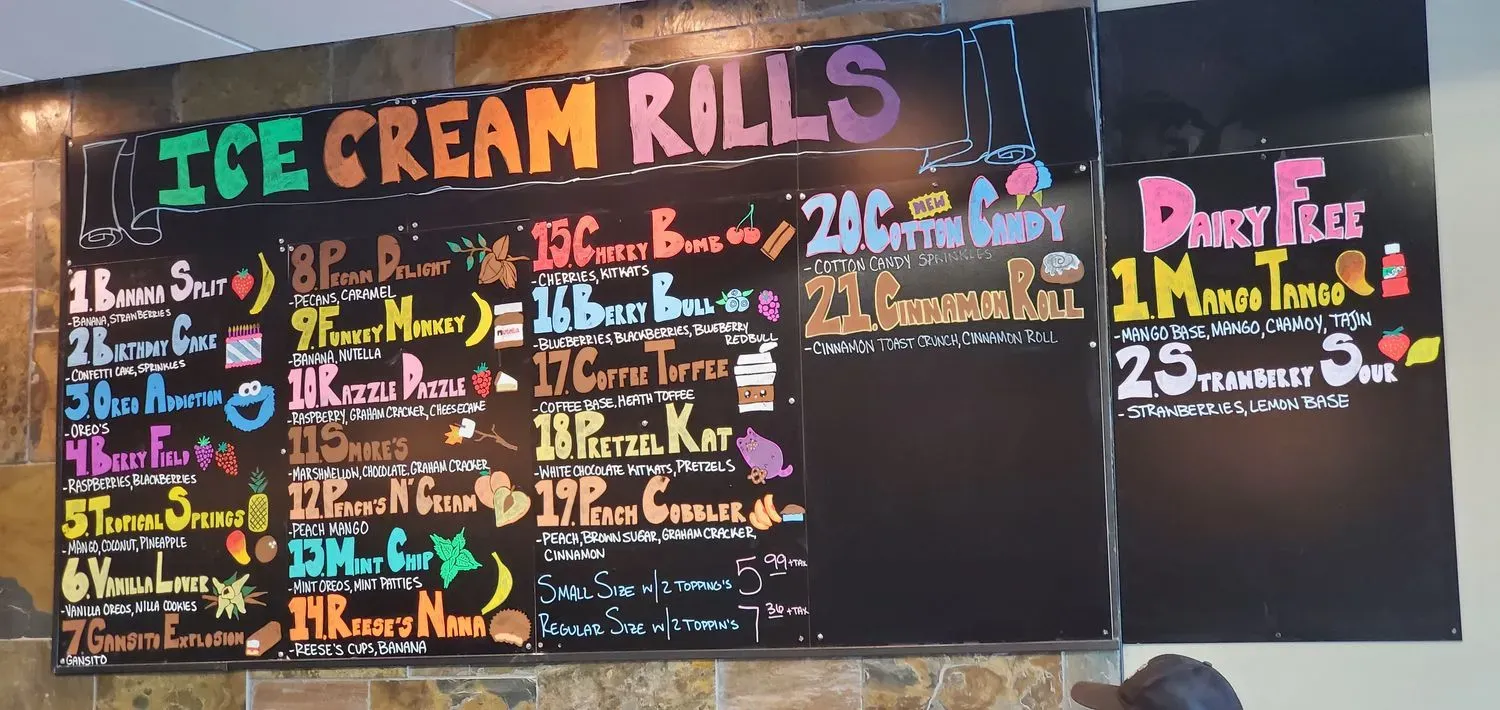 ICE CREAM ROLLS
1. BANANA SPLIT
- BANANA, STRAWBERRIES
2. BIRTHDAY CAKE
- CONFETTI CAKE, SPRINKLES
3. OREO ADDICTION
- OREO'S
4. BERRY FIELD
- RASPBERRIES, BLACKBERRIES
5. TROPICAL SPRINGS
- MANGO, COCONUT, PINEAPPLE
6. VANILLA LOVER
- VANILLA OREOS, NILLA COOKIES
7. GANSITO EXPLOSION
- GANSITO
8. PECAN DELIGHT
- PECANS, CARAMEL
9. FUNKEY MONKEY
- BANANA, NUTELLA
10. RAZZLE DAZZLE
- RASPBERRY, GRAHAM CRACKER, CHEESECAKE
11 SMORE'S
- MARSHMELLOW, CHOCOLATE, GRAHAM CRACKER
12. PEACH'S N' CREAM
- PEACH MANGO
13. MINT CHIP
- MINT OREOS, MINT PATTIES
14. REESE'S NANA
- REESE'S CUPS, BANANA
15 CHERRY BOMB
- CHERRIES, KITKATS
16. BERRY BULL
- BLUEBERRIES, BLACKBERRIES, BLUEBERRY
REDBULL
17. COFFEE TOFFEE
- COFFEE BASE, HEATH TOFFEE
18. PRETZEL KAT
- WHITE CHOCOLATE KITKATS, PRETZELS
19. PEACH COBBLER
- PEACH, BROWN SUGAR, GRAHAM CRACKER,
CINNAMON
SMALL SIZE W/2 TOPPING'S 5 99 +TAX
REGULAR SIZE W/2 TOPPIN'S 7 36 +TAX
NEW
20. COTTON CANDY
- COTTON CANDY SPRINKLES
21. CINNAMON ROLL
- CINNAMON TOAST CRUNCH, CINNAMON ROLL
DAIRY FREE
1. MANGO TANGO
- MANGO BASE, MANGO, CHAMOY, TAJIN
2. STRAWBERRY SOUR
- STRAWBERRIES, LEMON BASE